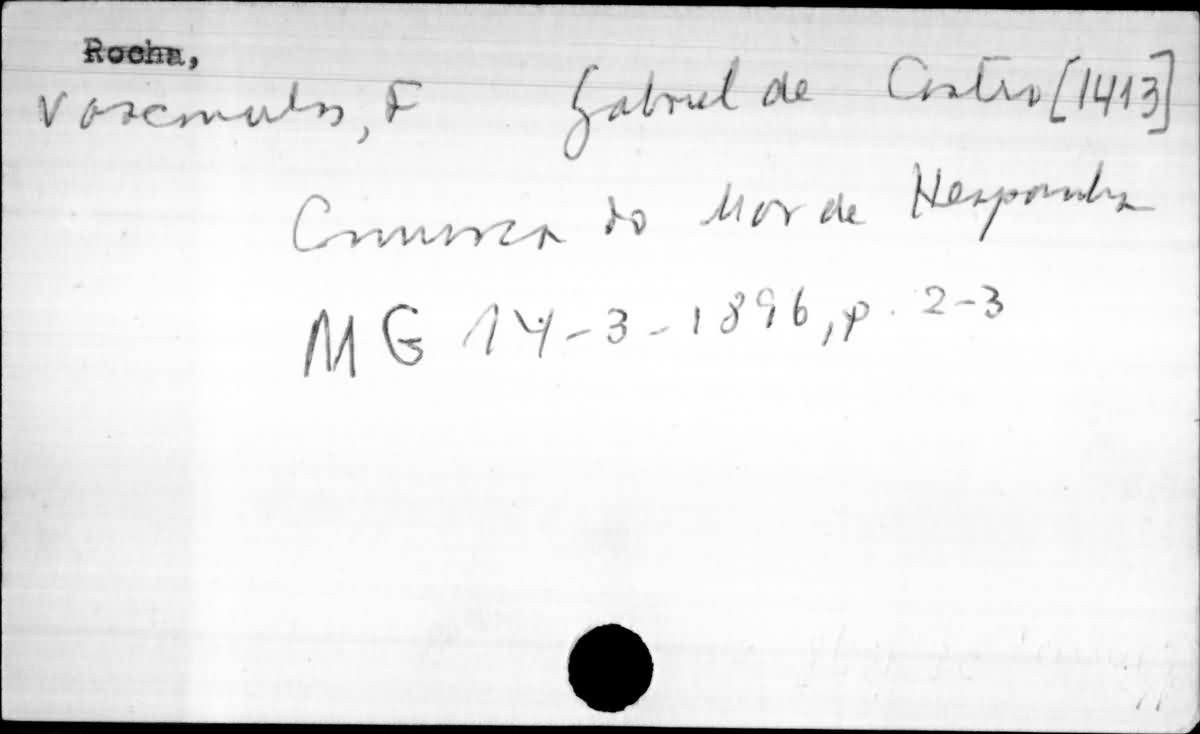 Rocha,
Vasconcelos, F Gabriel de Castro [1413]
Comarca do Mar de Hespanha
MG 14-3-1896, p. 2-3